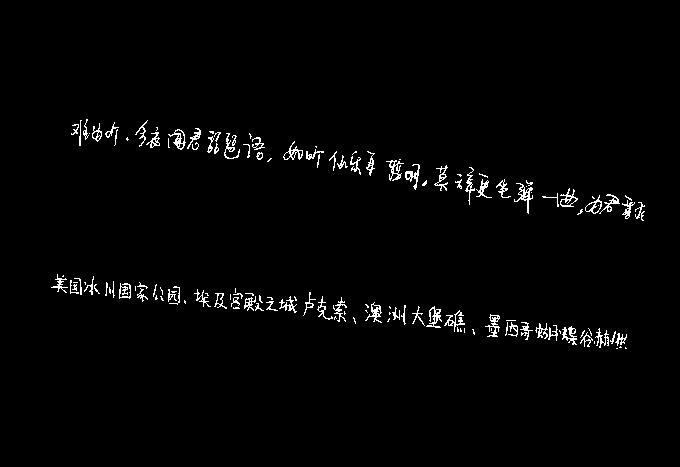 难为听。今夜闻君琵琶语,如听仙乐耳暂明。莫辞更坐弹一曲,为君翻作
美国冰川国家公园、埃及宫殿之城卢克索、澳洲大堡礁、墨西哥蝴蝶谷赫然